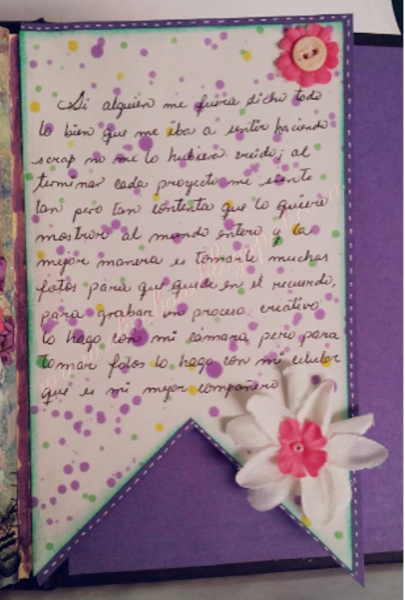 Si alguien me fuera dicho todo
lo bien que me iba a sentir haciendo
scrap no me lo hubiera creído; al
terminar cada proyecto me siento
tan pero tan contenta que lo quiero
mostrar al mundo entero y la
mejor manera es tomarle muchas
fotos para que quede en el recuerdo,
para grabar un proceso creativo
lo hago con mi cámara pero para
tomar fotos lo hago con mi celular
que es mi mejor compañero